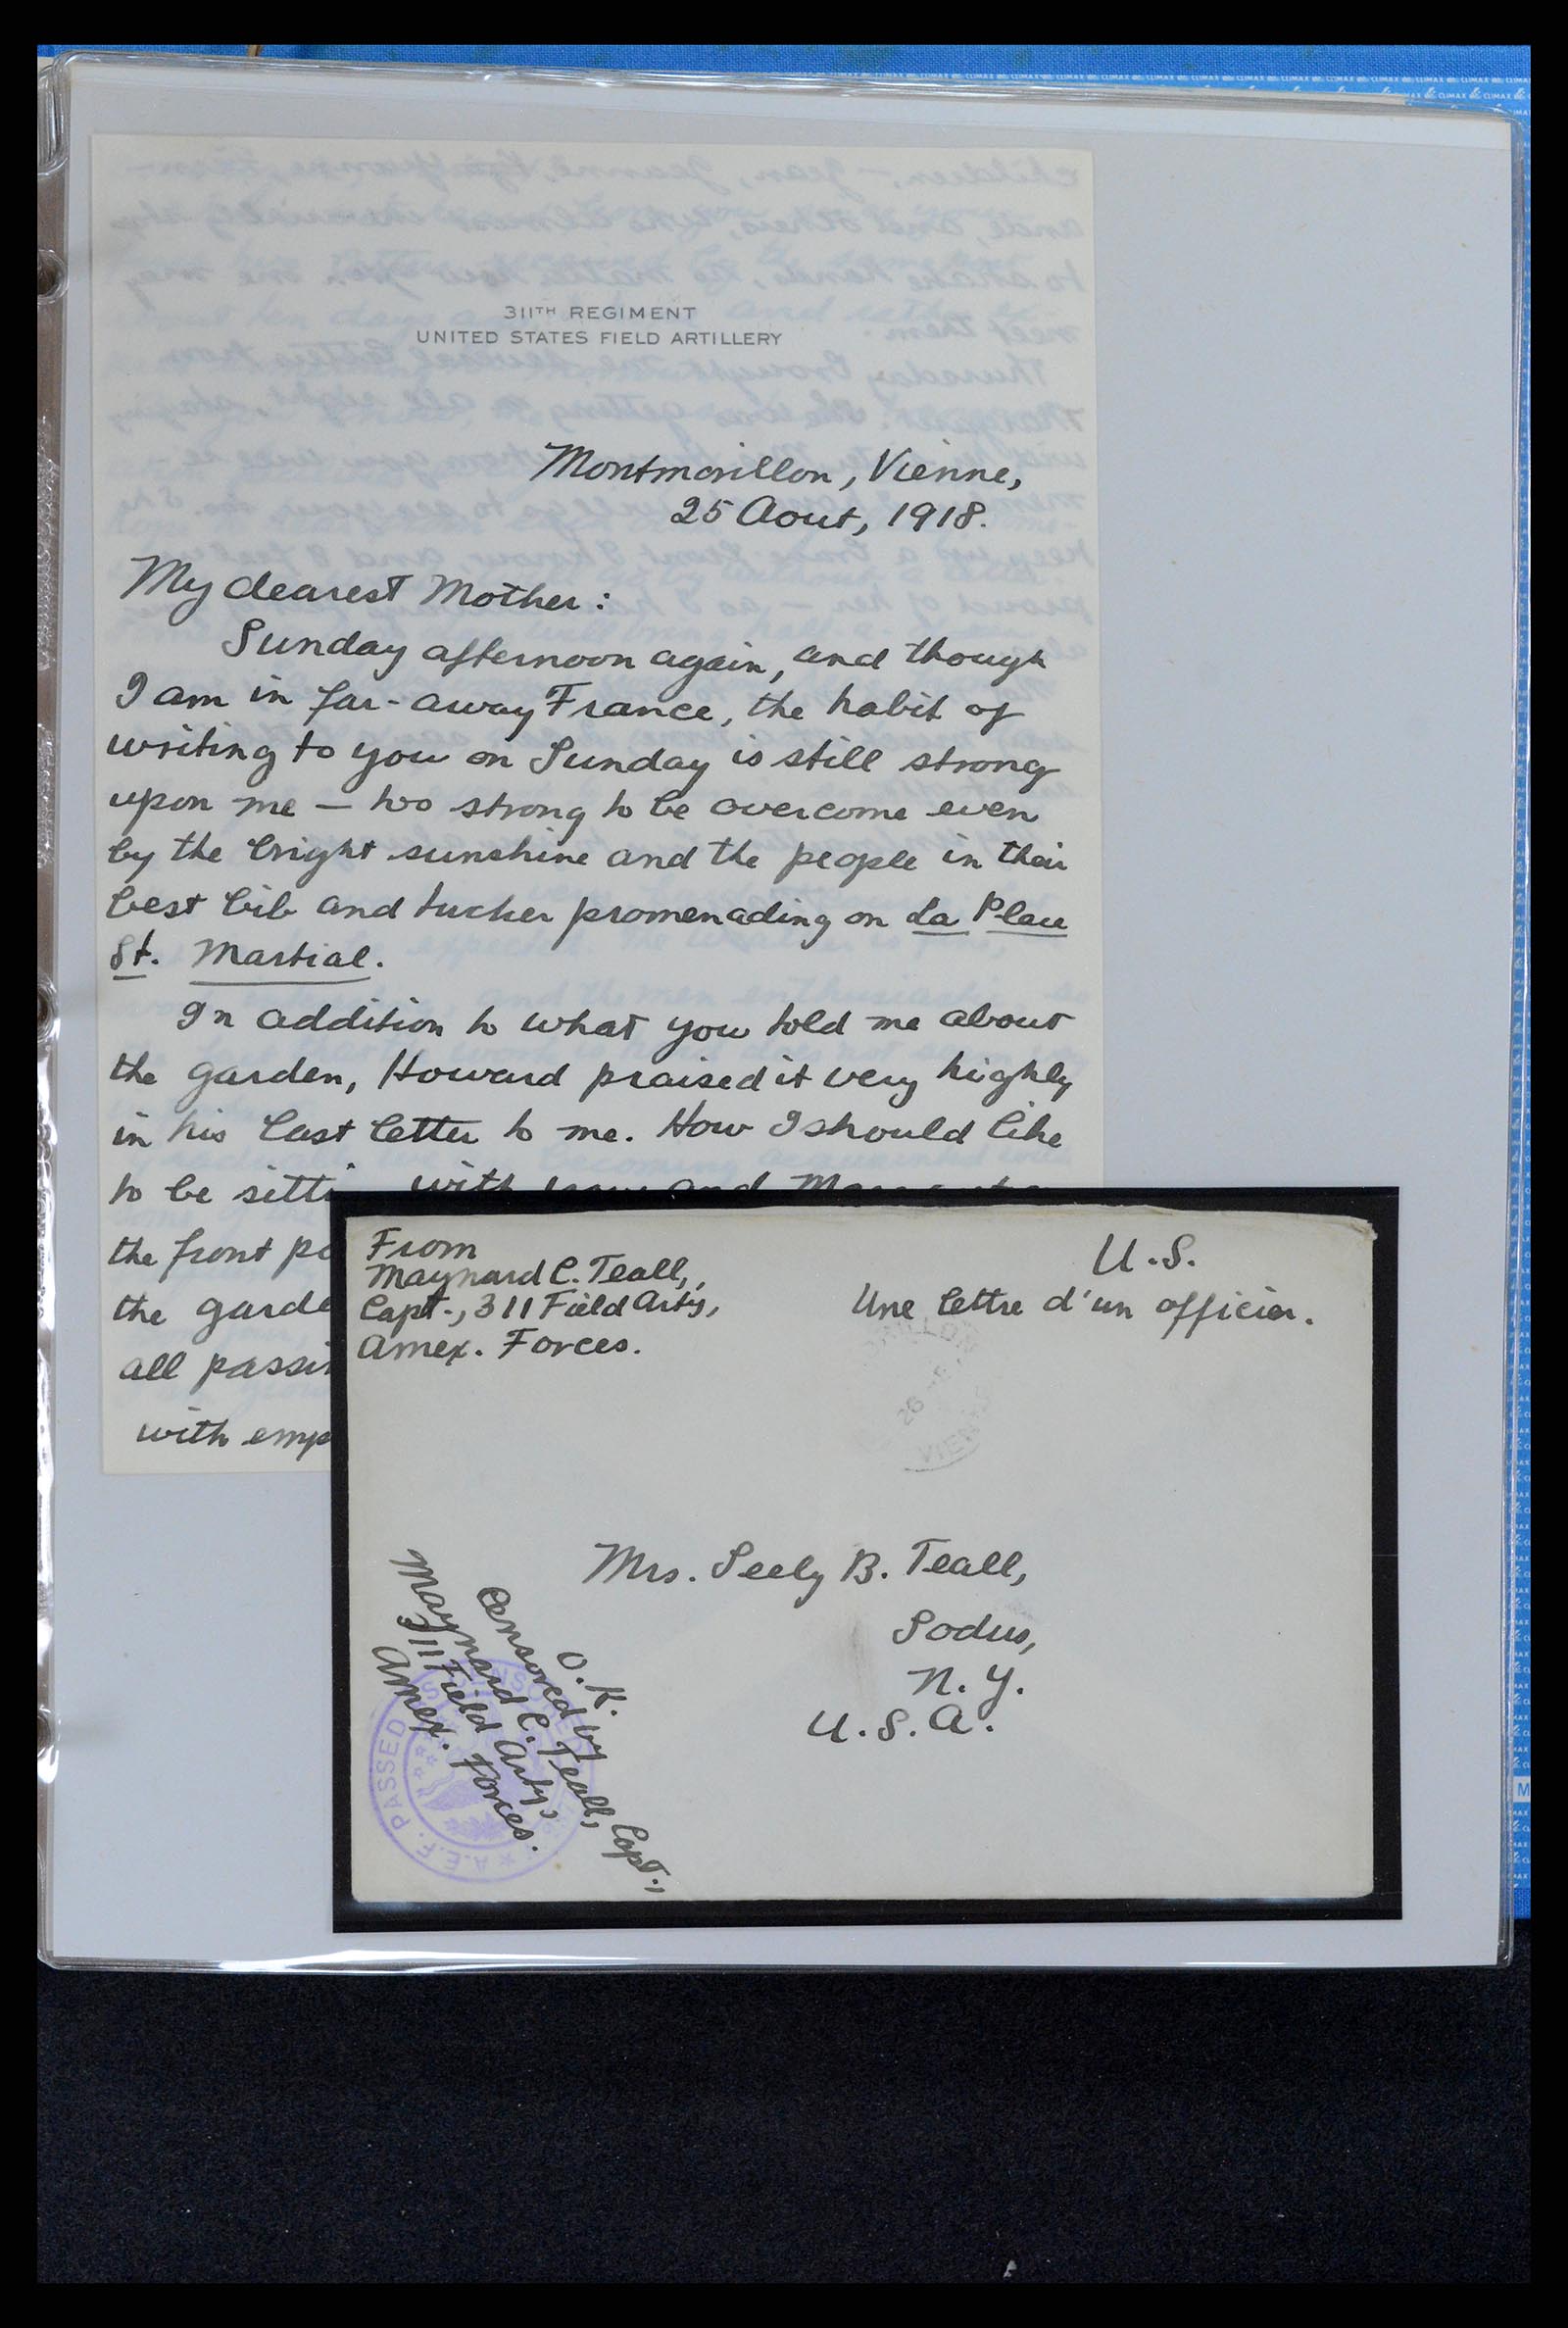 311TH REGIMENT
UNITED STATES FIELD ARTILLERY
Montmorillon, Vienne,
25 Aout, 1918.
My dearest Mother:
Sunday afternoon again, and though
I am in far-away France, the habit of
writing to you on Sunday is still strong
upon me — too strong to be overcome even
by the bright sunshine and the people in their
best bib and tucker promenading on La Place
St. Martial.
In addition to what you told me about
the garden, Howard praised it very highly
in his last letter to me. How I should like
to be sitti with you and
the front po
the garde
all passin
with emp
From
Maynard C. Teall,
Capt., 311 Field Arty,
Amex. Forces.
U.S.
Une lettre d'un officier.
26
VIEN
Mrs. Seely B. Teall,
Sodus,
N.Y.
U.S.A.
O.K.
Censored by
Maynard C. Teall, Capt.,
311 Field Arty,
Amex. Forces.
A.E.F. PASSED
CLIMAX